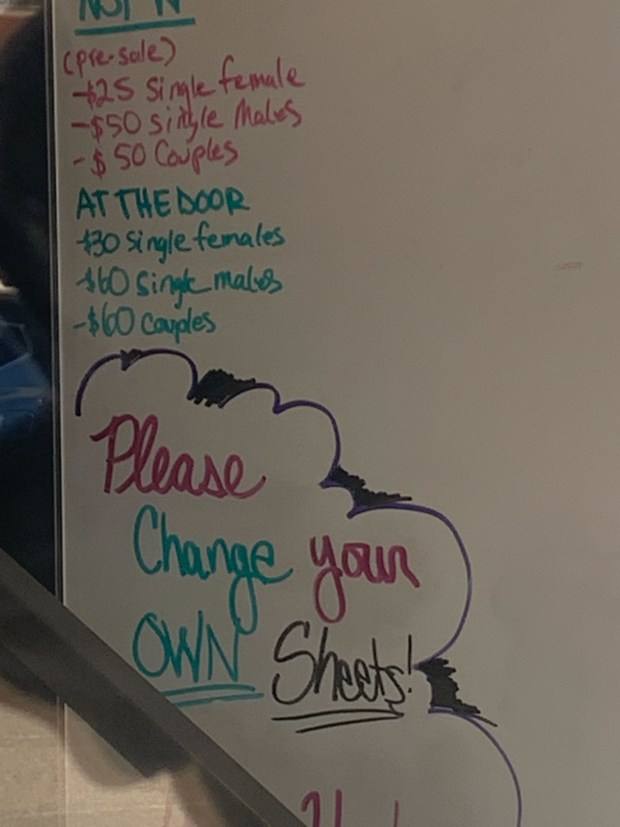 (pre-sale)
-$25 single female
-$50 single Males
-$50 Couples
AT THE DOOR
-$30 single females
-$60 single males
-$60 couples
Please
Change your
OWN Sheets!